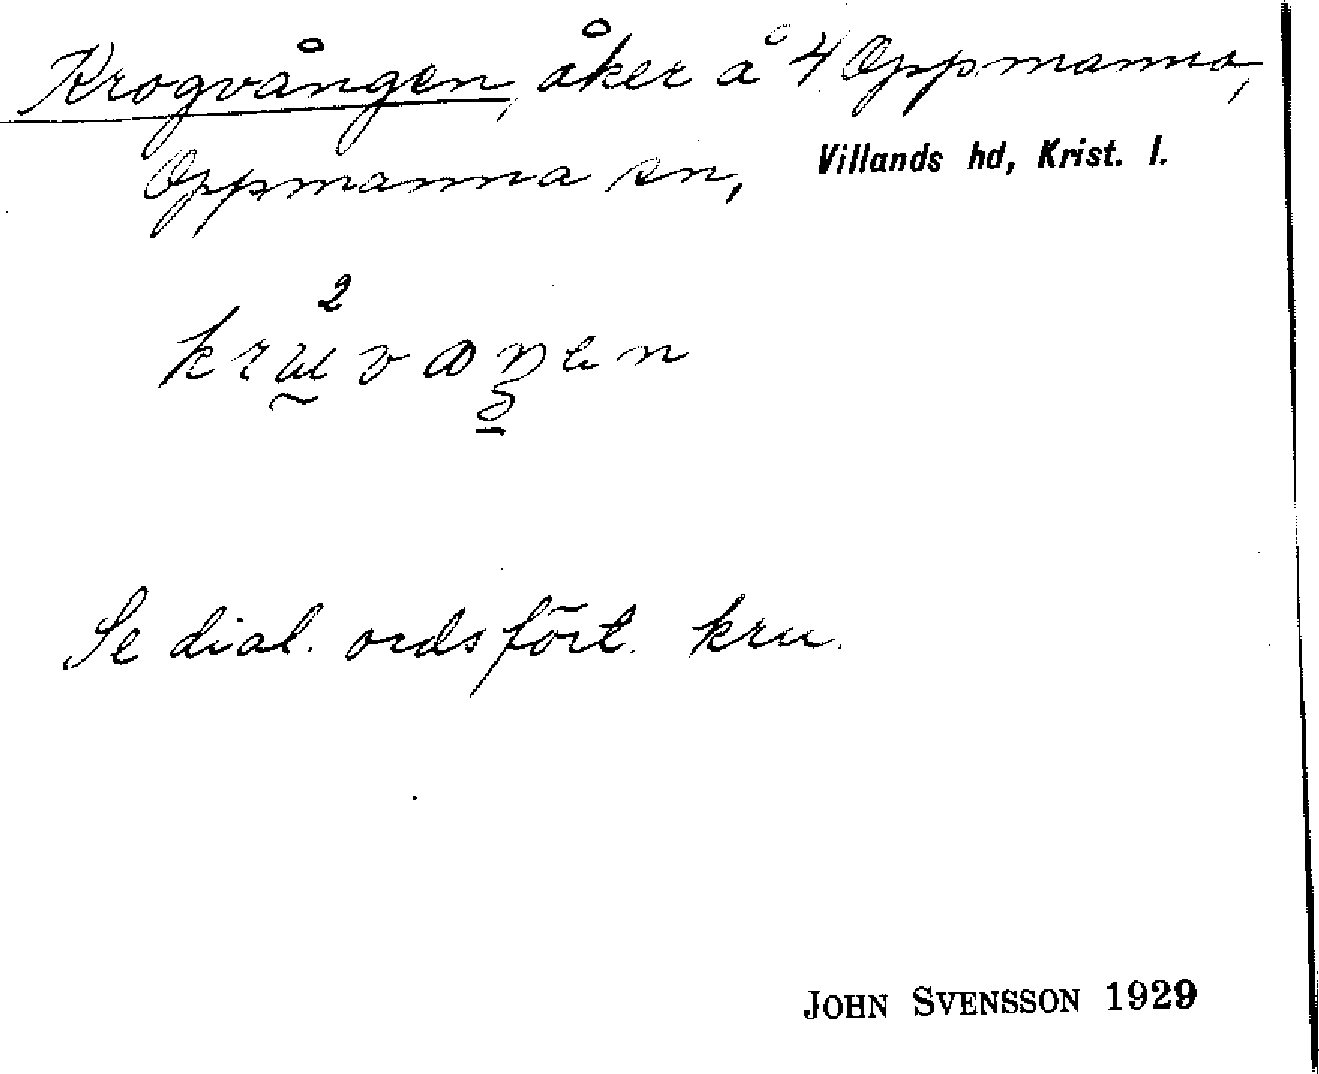 Krogvången, åker å 4 Oppmanna,
Oppmanna sn, Villands hd, Krist. l.
Se dial. ordsfört. kru.
JOHN SVENSSON 1929